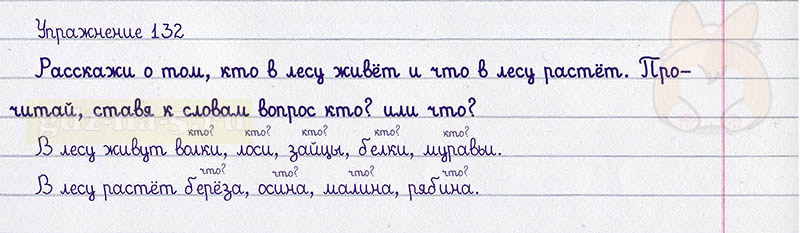 Упражнение 132
Расскажи о том, кто в лесу живёт и что в лесу растёт. Про-
читай, ставя к словам вопрос кто? или что?
кто? кто? кто? кто? кто?
В лесу живут волки, лоси, зайцы, белки, муравьи.
что? что? что? что?
В лесу растёт берёза, осина, малина, рябина.